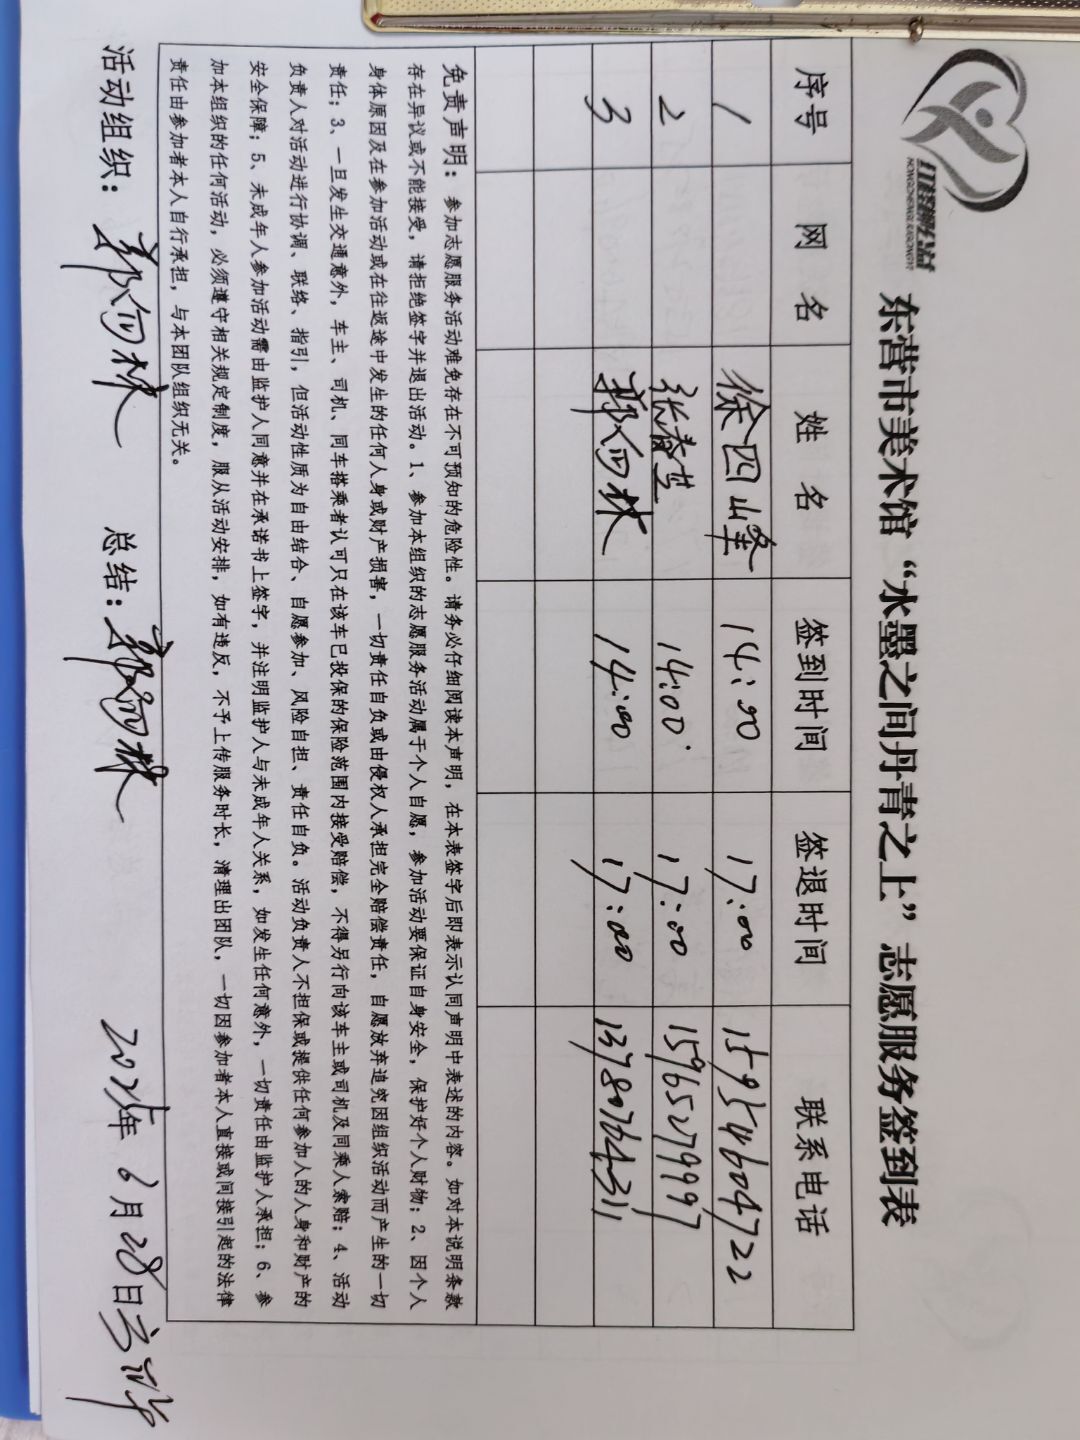 红橙枫公益
东营市美术馆“水墨之间丹青之上”志愿服务签到表
序号 网名 姓名 签到时间 签退时间 联系电话
1 徐四峰 14:00 17:00 15954604722
2 张春芝 14:00 17:00 15965279997
3 14:00 17:00 13780764311
免责声明：参加志愿服务活动难免存在不可预知的危险性。请务必仔细阅读本声明，在本表签字后即表示认同声明中表述的内容。如对本说明条款
存在异议或不能接受，请拒绝签字并退出活动。1、参加本组织的志愿服务活动属于个人自愿，参加活动要保证自身安全，保护好个人财物；2、因个人
身体原因及在参加活动或在往返途中发生的任何人身或财产损害，一切责任自负或由侵权人承担完全赔偿责任，自愿放弃追究因组织活动而产生的一切
责任；3、一旦发生交通意外，车主、司机、同车搭乘者认可只在该车已投保的保险范围内接受赔偿，不得另行向该车主或司机及同乘人索赔；4、活动
负责人对活动进行协调、联络、指引，但活动性质为自由结合、自愿参加、风险自担、责任自负。活动负责人不担保或提供任何参加人的人身和财产的
安全保障；5、未成年人参加活动需由监护人同意并在承诺书上签字，并注明监护人与未成年人关系，如发生任何意外，一切责任由监护人承担；6、参
加本组织的任何活动，必须遵守相关规定制度，服从活动安排，如有违反，不予上传服务时长，清理出团队，一切因参加者本人直接或间接引起的法律
责任由参加者本人自行承担，与本团队组织无关。
活动组织： 总结： 2025年6月28日